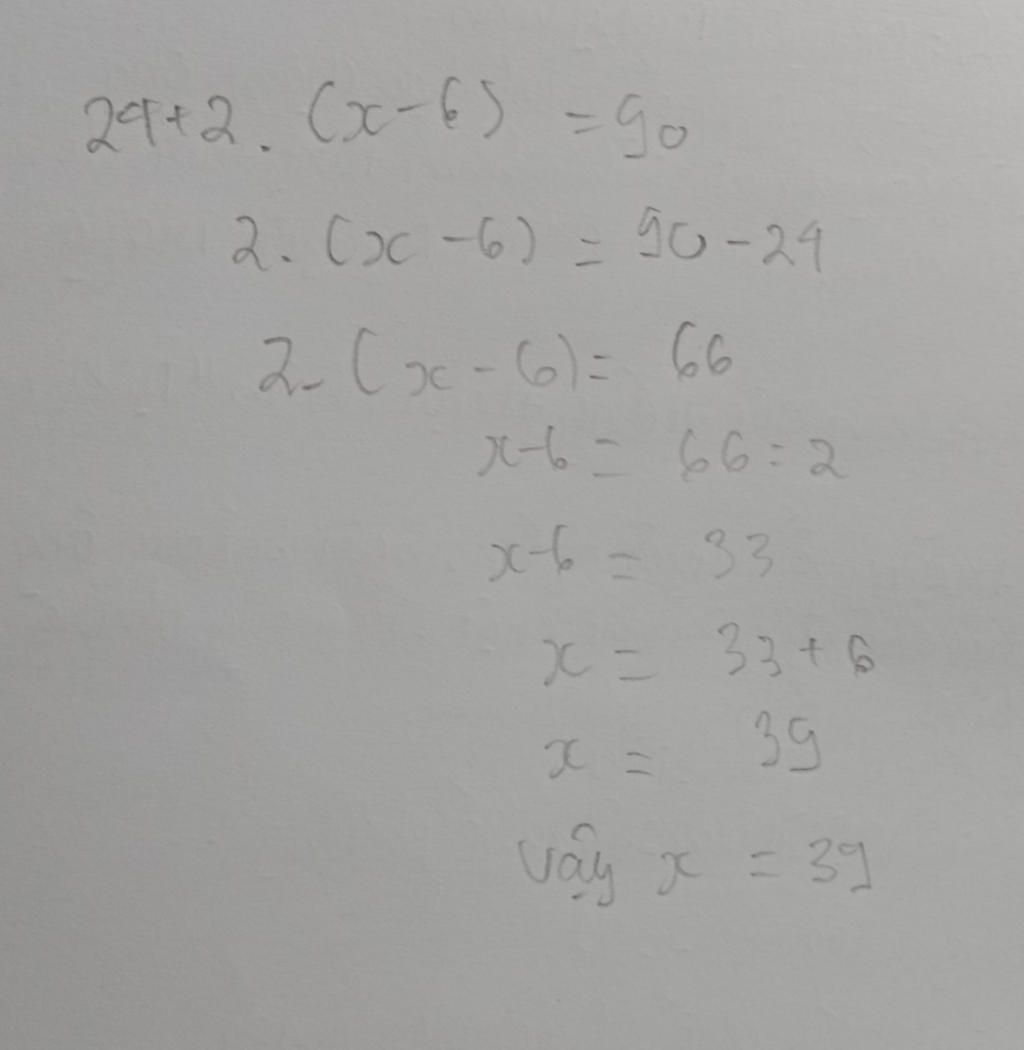 24+2. (x-6) = 90
2. (x-6) = 90-24
2. (x-6) = 66
x-6 = 66:2
x-6 = 33
x = 33+6
x = 39
Vậy x = 39